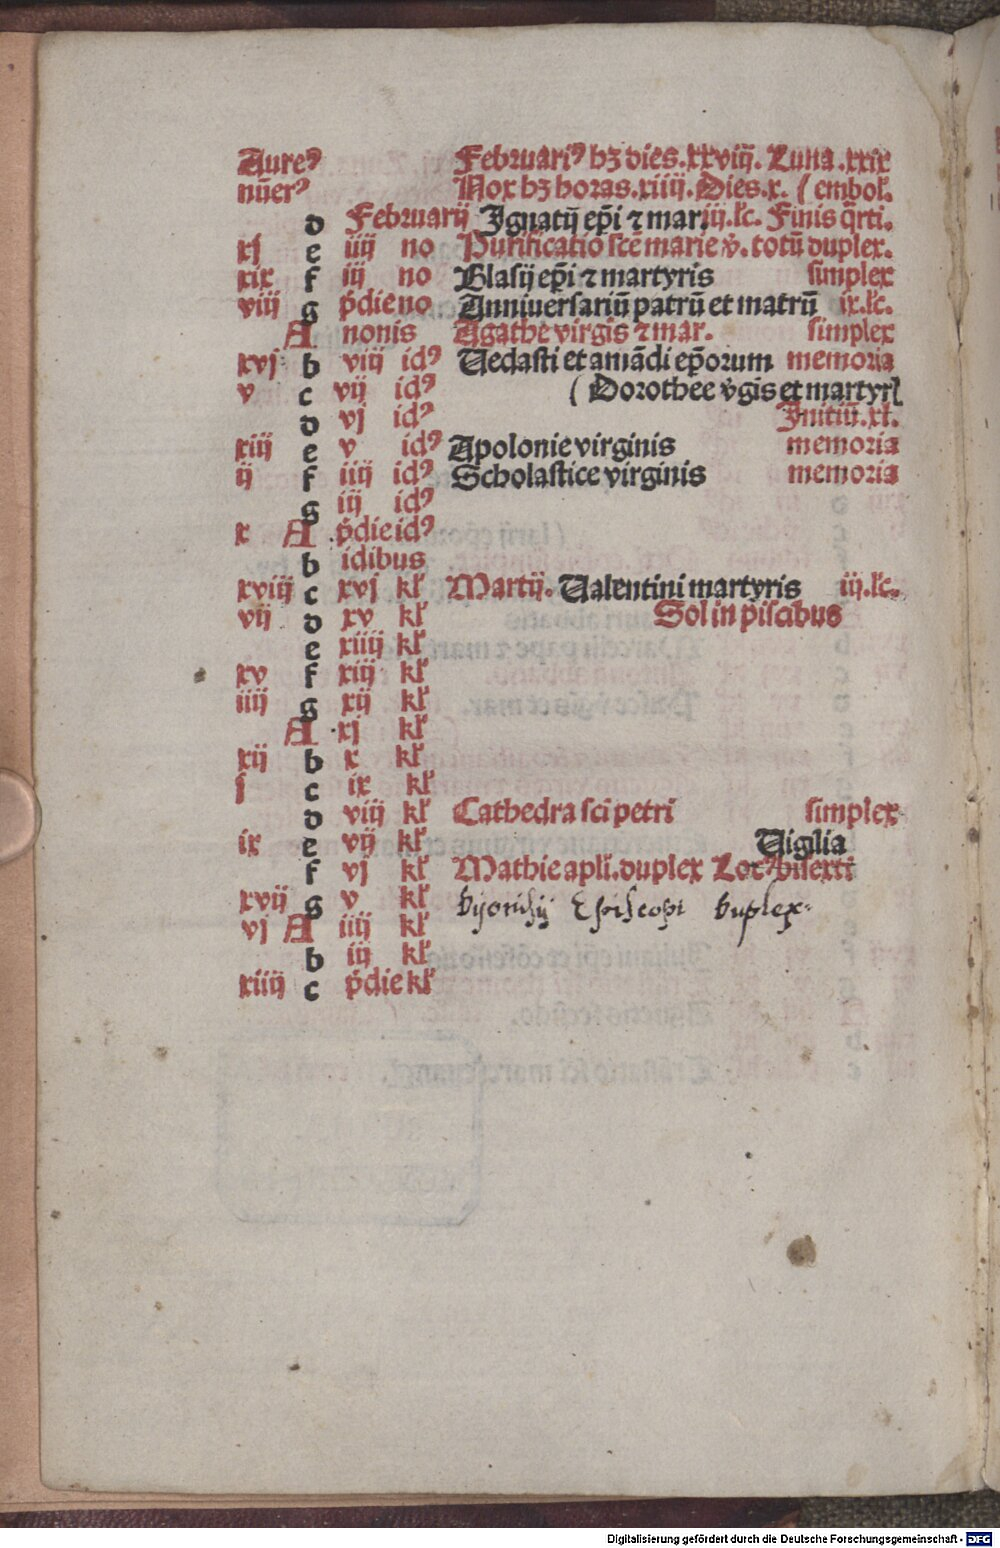 Aureꝰ Februariꝰ hʒ dies.xxviij. Luna.xxix
nūerꝰ Nox hʒ horas.xiiij. Dies.x. ( embol̕.
d Februarij Ignatij ep̄i ⁊ mar.iij.lc̄. Finis q̄rti.
xj e iiij no Purificatio scē marie v̄. totū duplex.
xix f iij no Blasij ep̄i ⁊ martyris simplex
viij g p̄die no Anniuersariū patrū et matrū ix.lc̄.
A nonis Agathe virgis ⁊ mar. simplex
xvj b viij idꝰ Vedasti et amādi ep̄orum memoria
v c vij idꝰ ( Dorothee v̄gis et martyr̄
d vj idꝰ Initiū.xl.
xiij e v idꝰ Apolonie virginis memoria
ij f iiij idꝰ Scholastice virginis memoria
g iij idꝰ
x A p̄die idꝰ
b idibus
xviij c xvj kl̕ Martij. Valentini martyris iij.lc̄.
vij d xv kl̕ Sol in piscibus
e xiiij kl̕
xv f xiij kl̕
iiij g xij kl̕
A xj kl̕
xij b x kl̕
j c ix kl̕
d viij kl̕ Cathedra sci petri simplex
ix e vij kl̕ Vigilia
f vj kl̕ Mathie apl̕i. duplex Locꝰ bisexti
xvij g v kl̕ Episcopi duplex
vj A iiij kl̕
b iij kl̕
xiiij c p̄die kl̕
Digitalisierung gefördert durch die Deutsche Forschungsgemeinschaft - DFG